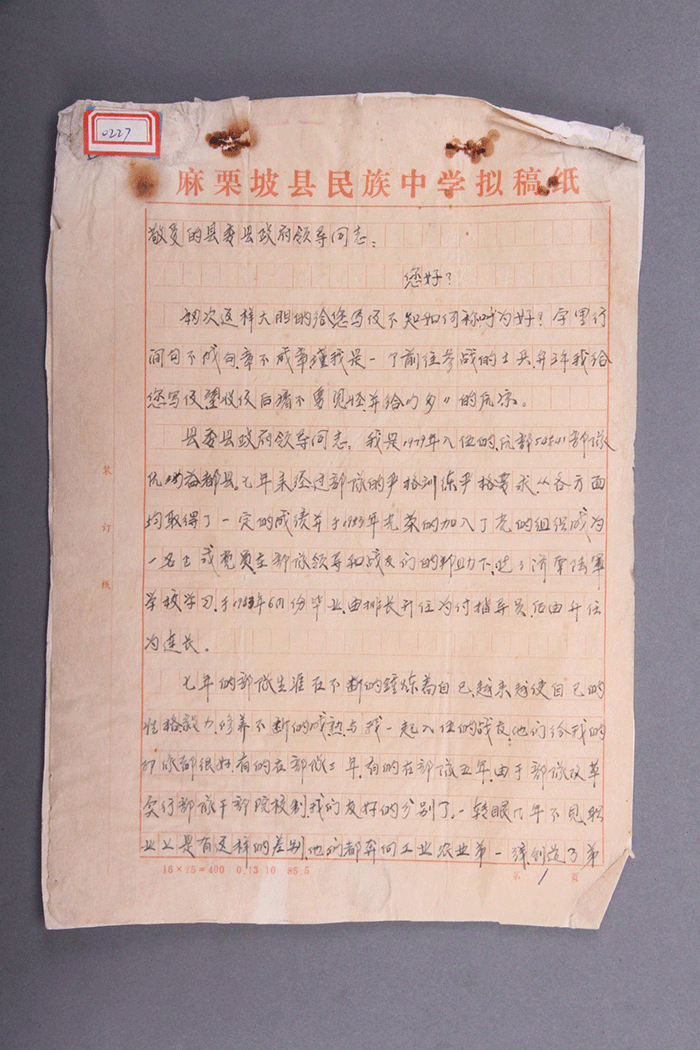 0227
麻栗坡县民族中学拟稿纸
敬爱的县委县政府领导同志：
您好？
初次这样大胆的给您写信不知如何称呼为好？字里行
间句不成句章不成章谨我是一了前往参战的士兵
您写信望收信后请不要见怪并给的多
县委县政府领导同志，我是1979年入伍的，
七年来经过部队的严格训练严格要求，从各方面
均取得了一定的成绩并于1983年光荣的加入了党的组织成为
一名士 党员在部队领导和战友们的帮助下，选 济南陆军
学校学习，于 年6月份毕业，由排长升任为付指导员，后由升任
为连长。
七年的部队生涯在不断的锤炼着自己，越来越使自己的
性格毅力，修养不断的成熟与我一起入伍的战友，他们给我的
印象都很好，有的在部队三年，有的在部队五年，由于部队改革
实行部队干部院校制我们友好的分别了，一转眼几年不见，职
业上是有这样的差别，他们都奔向工业农业第一线创造了第
装订线
16×25=400 0.13 10 85.5
第1页